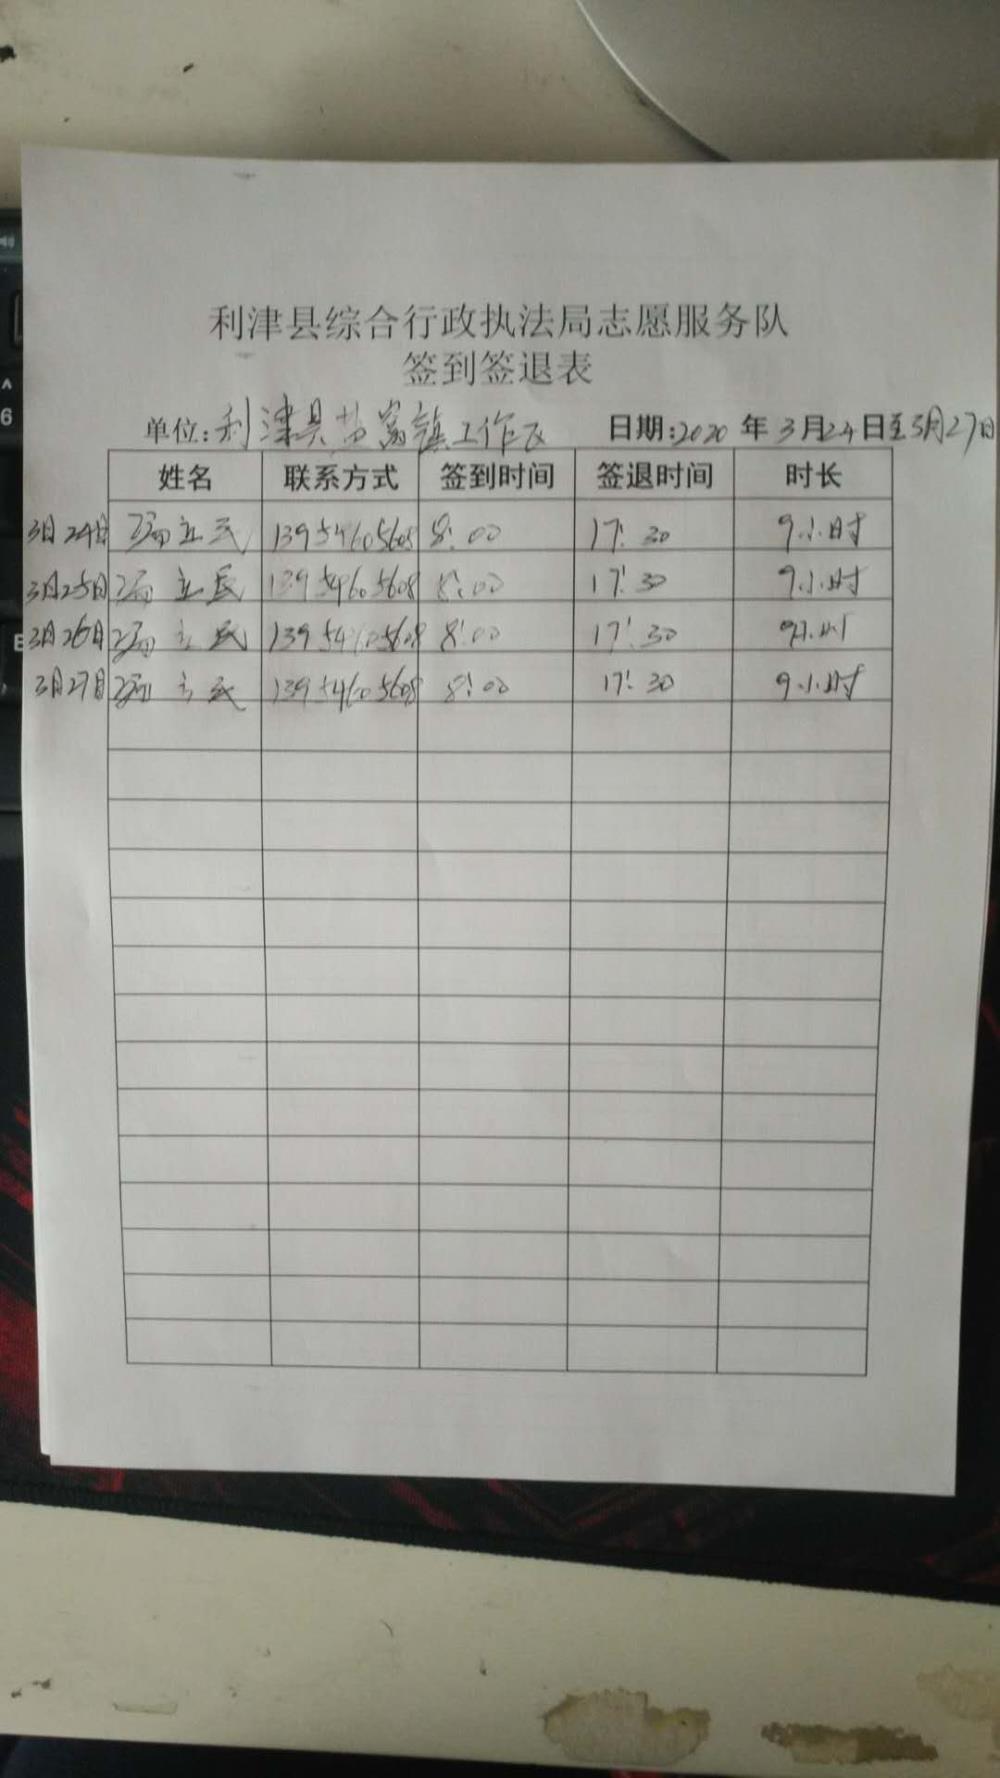 利津县综合行政执法局志愿服务队
签到签退表
单位:利津县盐窝镇工作区 日期:2020 年 3月24日至3月27日
姓名 联系方式 签到时间 签退时间 时长
3月24日 立民 13954605608 8:00 17:30 9小时
3月25日 立民 13954605608 8:00 17:30 9小时
3月26日 立民 13954605608 8:00 17:30 9小时
3月27日 立民 13954605608 8:00 17:30 9小时
6